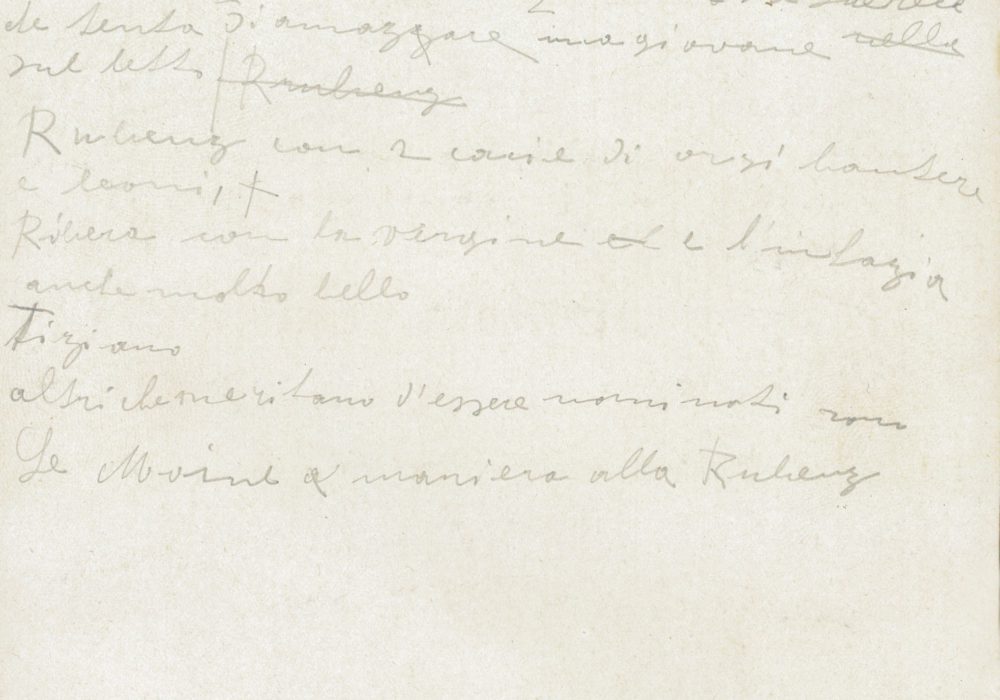 de tenta di amazzare una giovane nella
sul letto Rubenz
Rubenz con 2 cacie di orsi pantere
e leoni, +
Ribera con la vergine e l'infazia
anche molto bello
Tiziano
altri che meritano d'essere nominati sono
Le Moine a maniera alla Rubenz